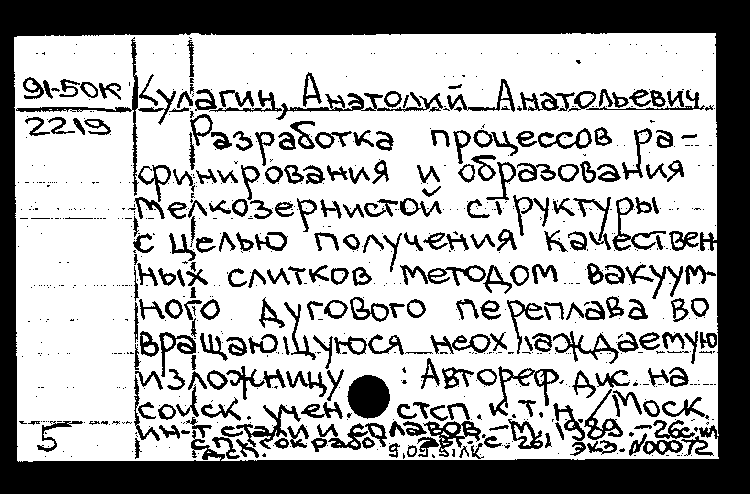 91-50К
2219
Кулагин, Анатолий Анатольевич
Разработка процессов ра-
финирования и образования
мелкозернистой структуры
с целью получения качествен
ных слитков методом вакуум-
ного дугового переплава во
вращающуюся неохлаждаемую
изложницу : Автореф. дис. на
соиск. учен. стсп. к.т.н / Моск.
ин-т стали и сплавов. - М., 1989. - 26с.: ил
сп. работ: авт.: с. 26,
экз. №00072
5
9.09.91ЛК